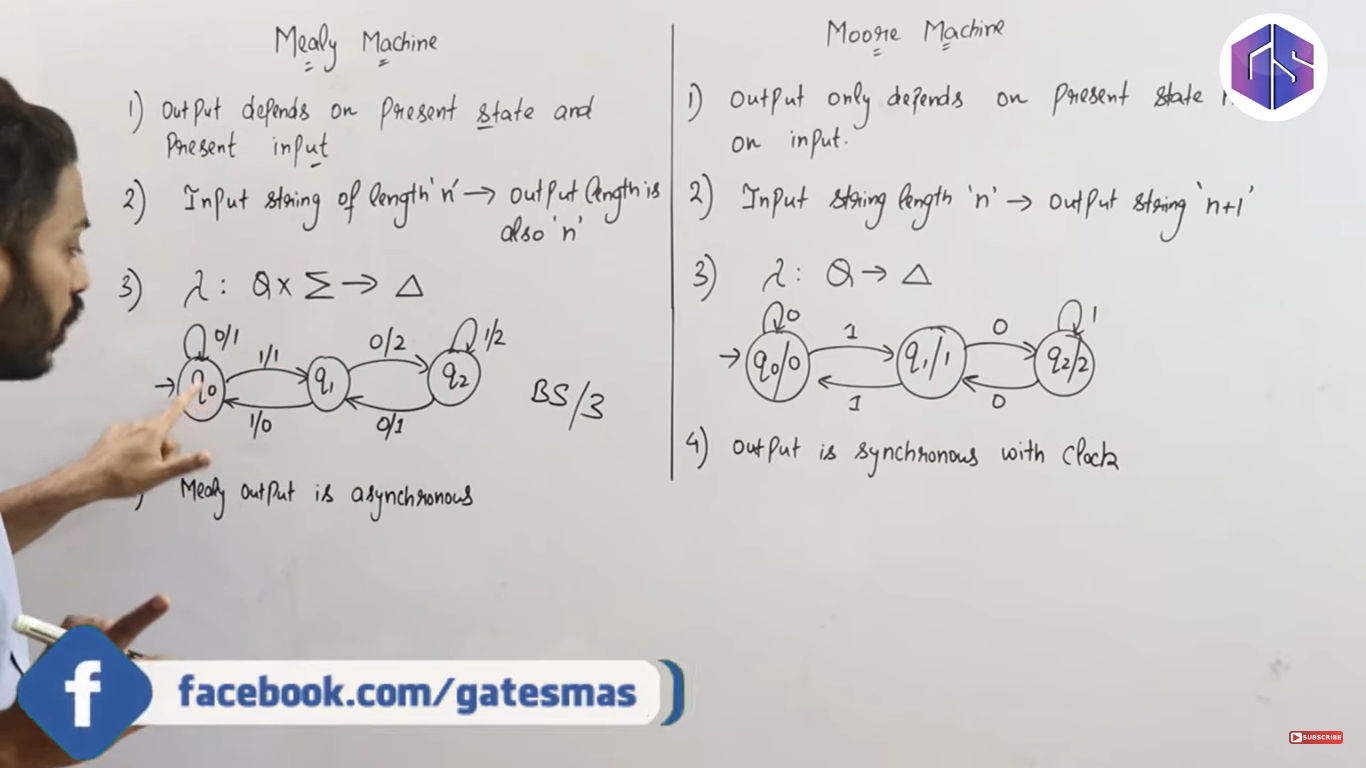 Mealy Machine
1) Output depends on present state and
present input
2) Input string of length 'n' → output length is
also 'n'
3) λ: Q × Σ → Δ
0/1
1/1
0/2
1/2
q0
q1
q2
1/0
0/1
BS/3
Mealy output is asynchronous
Moore Machine
1) Output only depends on present state
on input.
2) Input string length 'n' → output string 'n+1'
3) λ: Q → Δ
0
1
0
1
q0/0
q1/1
q2/2
1
0
4) Output is synchronous with clock
GS
f
facebook.com/gatesmas
SUBSCRIBE